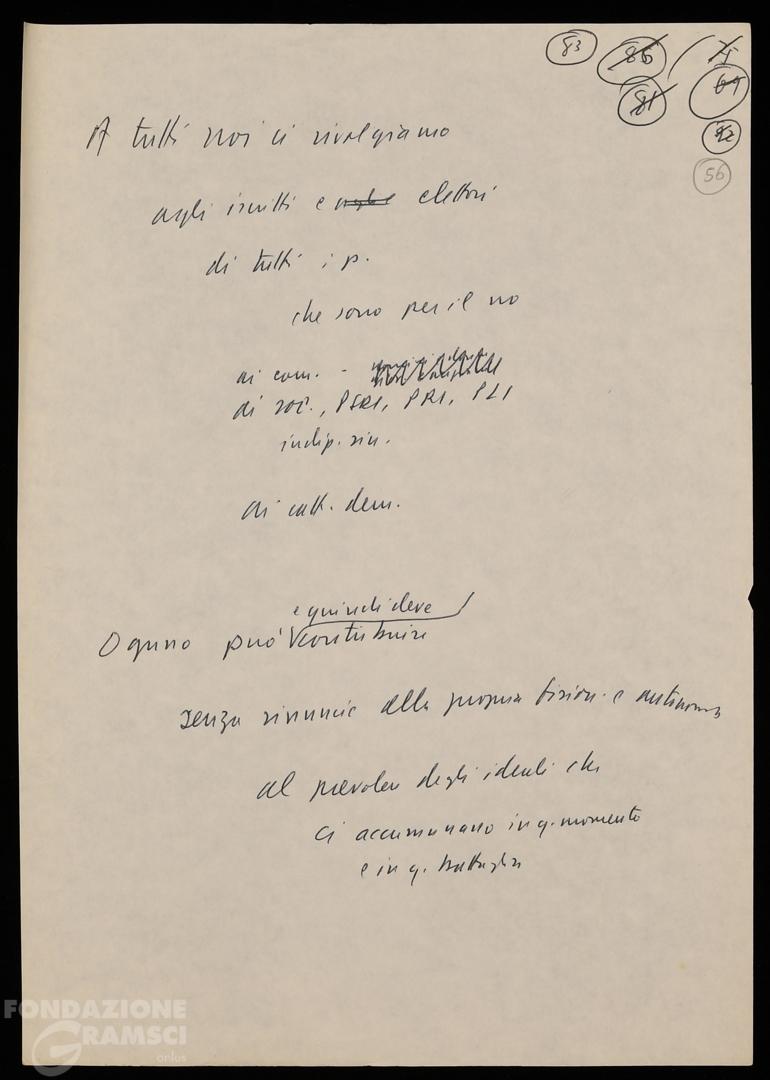 83 86 75
81 64
92
56
A tutti noi ci rivolgiamo
agli iscritti e elettori
di tutti i p.
che sono per il no
ai com. -
ai soc., PSDI, PRI, PLI
indip. sin.
ai catt. dem.
e quindi deve
Ognuno può contribuire
senza rinuncie alla propria fision. e autonomia
al prevalere degli ideali che
ci accomunano in q. momento
e in q. battaglia
FONDAZIONE
GRAMSCI
onlus